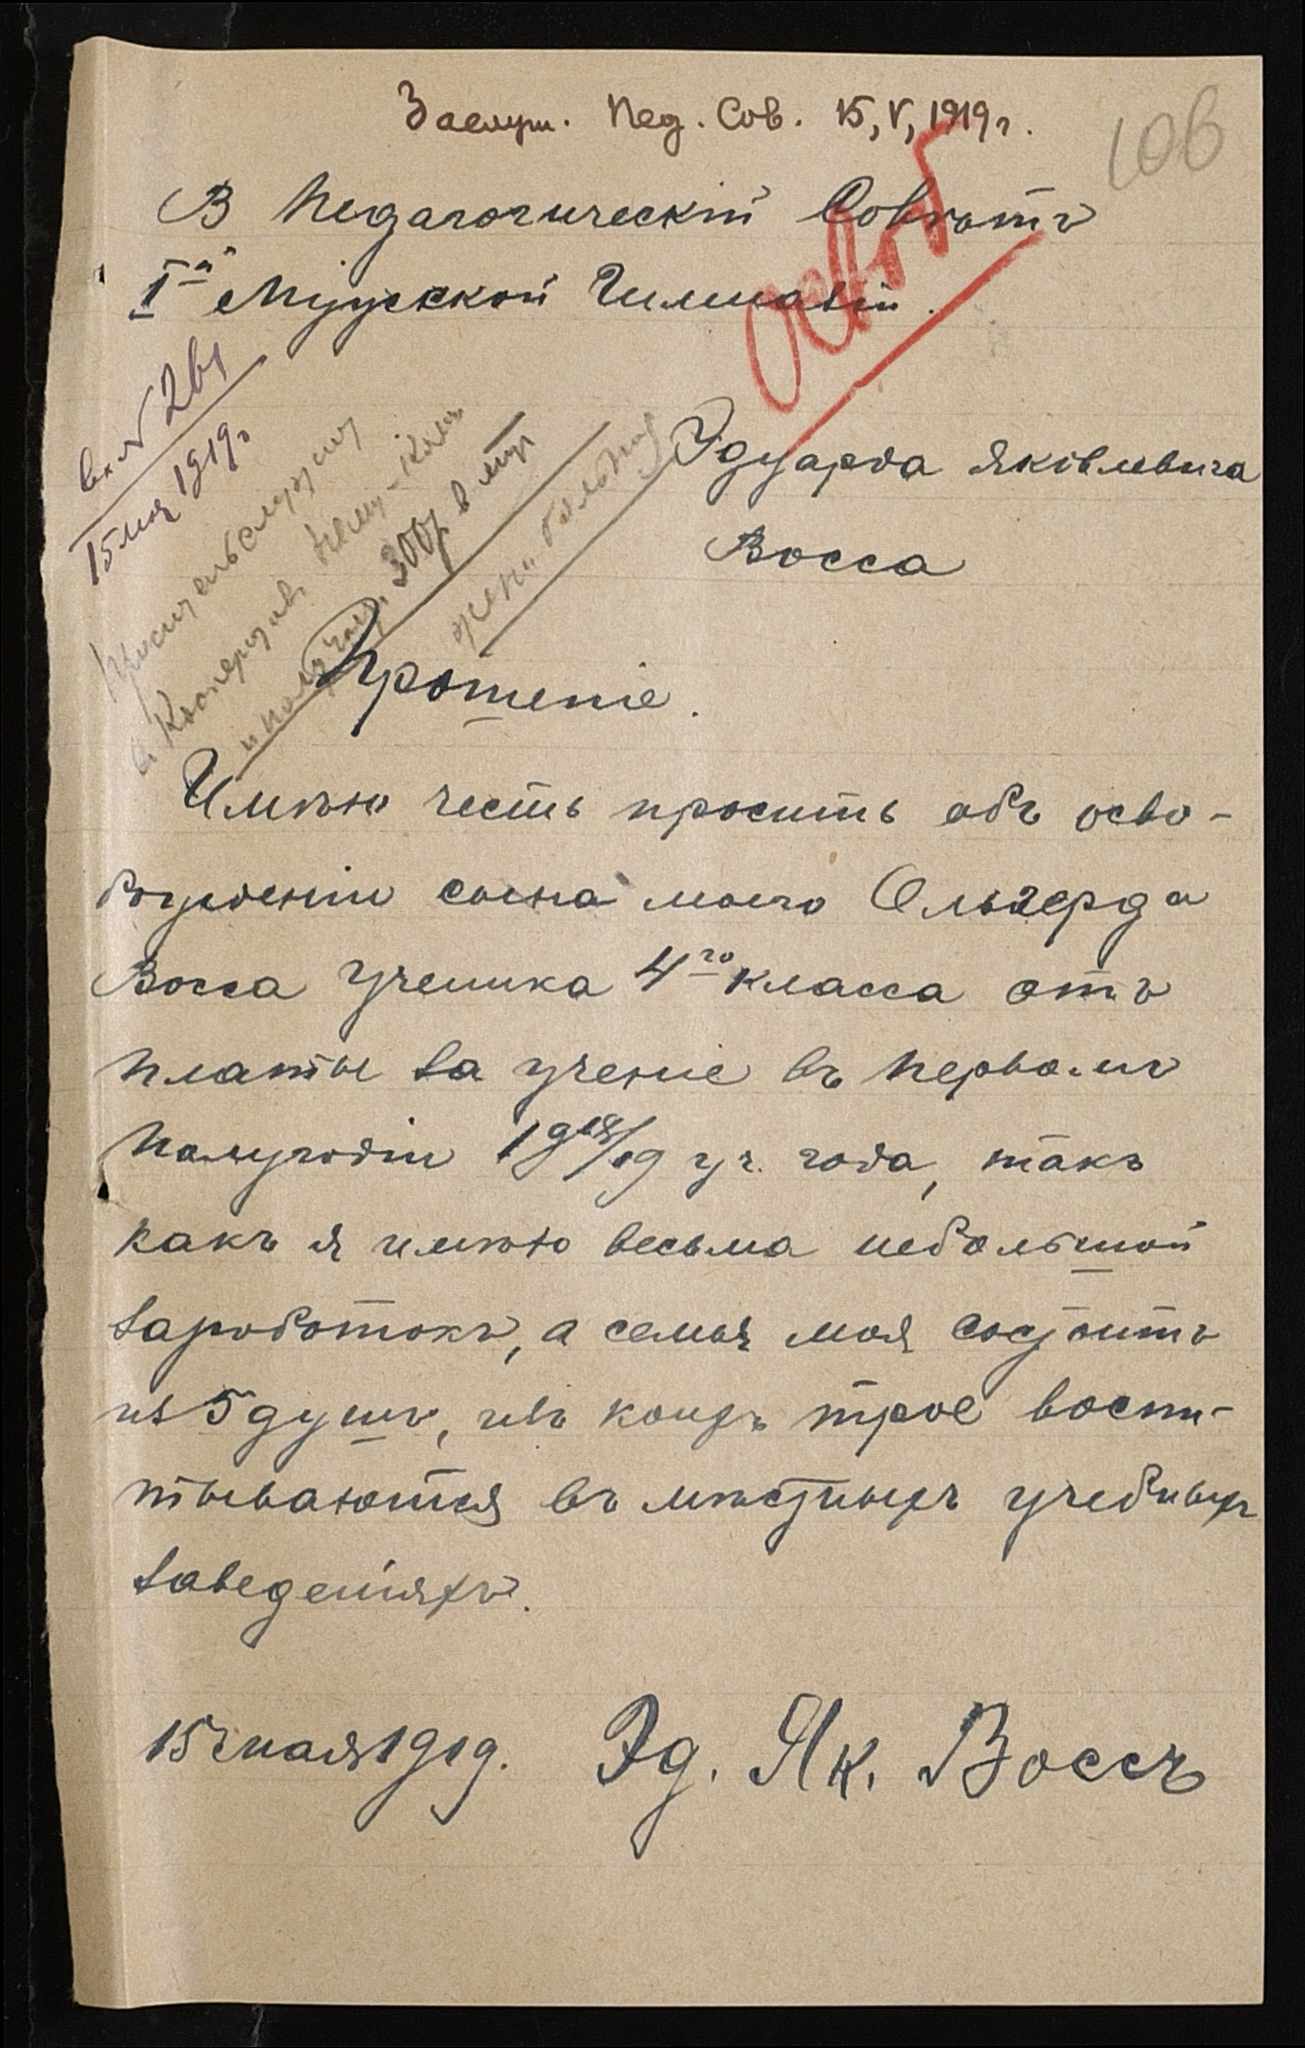 Заслуш. Пед. Сов. 15, V, 1919 г.
106
В Педагогическій Совѣтъ
Iй Мужской Гимназіи.
Освоб
вх. № 261
15 мая 1919 г.
Проситель служит
в Кооператив
и получает 300 р в мѣс
жена больная
Эдуарда Яковлевича
Восса
Прошеніе.
Имѣю честь просить объ осво-
божденіи сына моего Ольгерда
Восса ученика 4го класса отъ
платы за ученіе въ первомъ
полугодіи 1918/19 уч. года, такъ
какъ я имѣю весьма небольшой
заработокъ, а семья моя состоитъ
из 5 душъ, изъ коихъ трое воспи-
тываются въ мѣстныхъ учебныхъ
заведеніяхъ.
15 мая 1919. Эд. Як. Воссъ